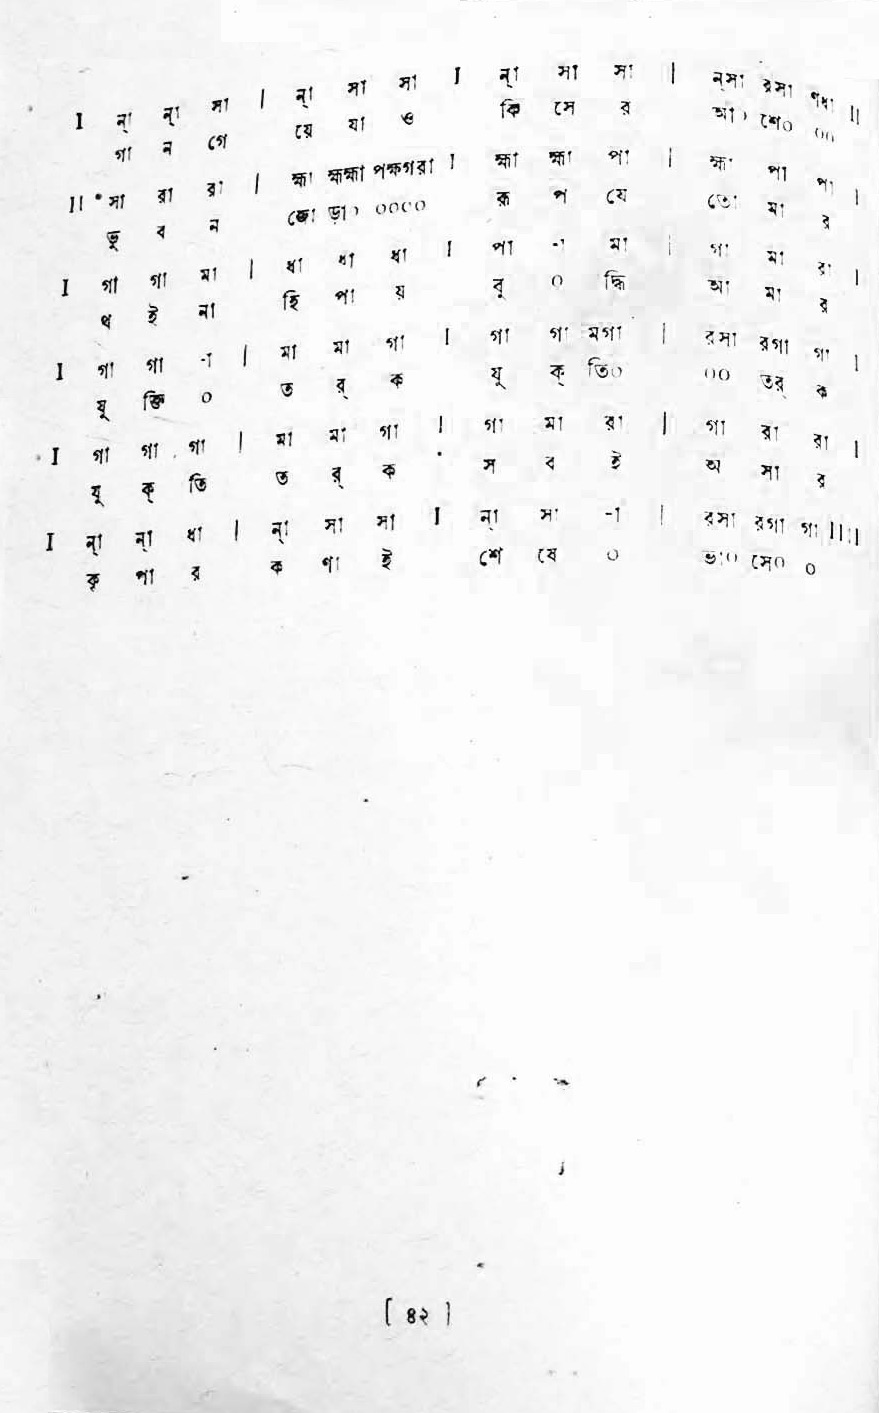 I ন্া ন্া সা | ন্া সা সা I ন্া সা সা | ন্সা রসা ণ্ধা II
গা ন গে য়ে যা ও কি সে র আ০ শে০ ০০
II সা রা রা | হ্মা হ্মহ্মা পহ্মগরা I হ্মা হ্মা পা | হ্মা পা পা |
ভু ব ন জো ড়া০ ০০০০ রূ প যে তো মা র
I গা গা মা | ধা ধা ধা I পা -া মা | গা মা রা |
থ ই না হি পা য় বু ০ দ্ধি আ মা র
I গা গা -া | মা মা গা I গা গা মগা | রসা রগা গা |
যু ক্তি ০ ত র্ ক যু ক্ তি০ ০০ তর্ ক
I গা গা গা | মা মা গা I গা মা রা | গা রা রা |
যু ক্ তি ত র্ ক স ব ই অ সা র
I ন্া ন্া ধা | ন্া সা সা I ন্া সা -া | রসা রগা গা IIII
কৃ পা র ক ণা ই শে ষে ০ ভা০ সে০ ০
[ ৪২ ]